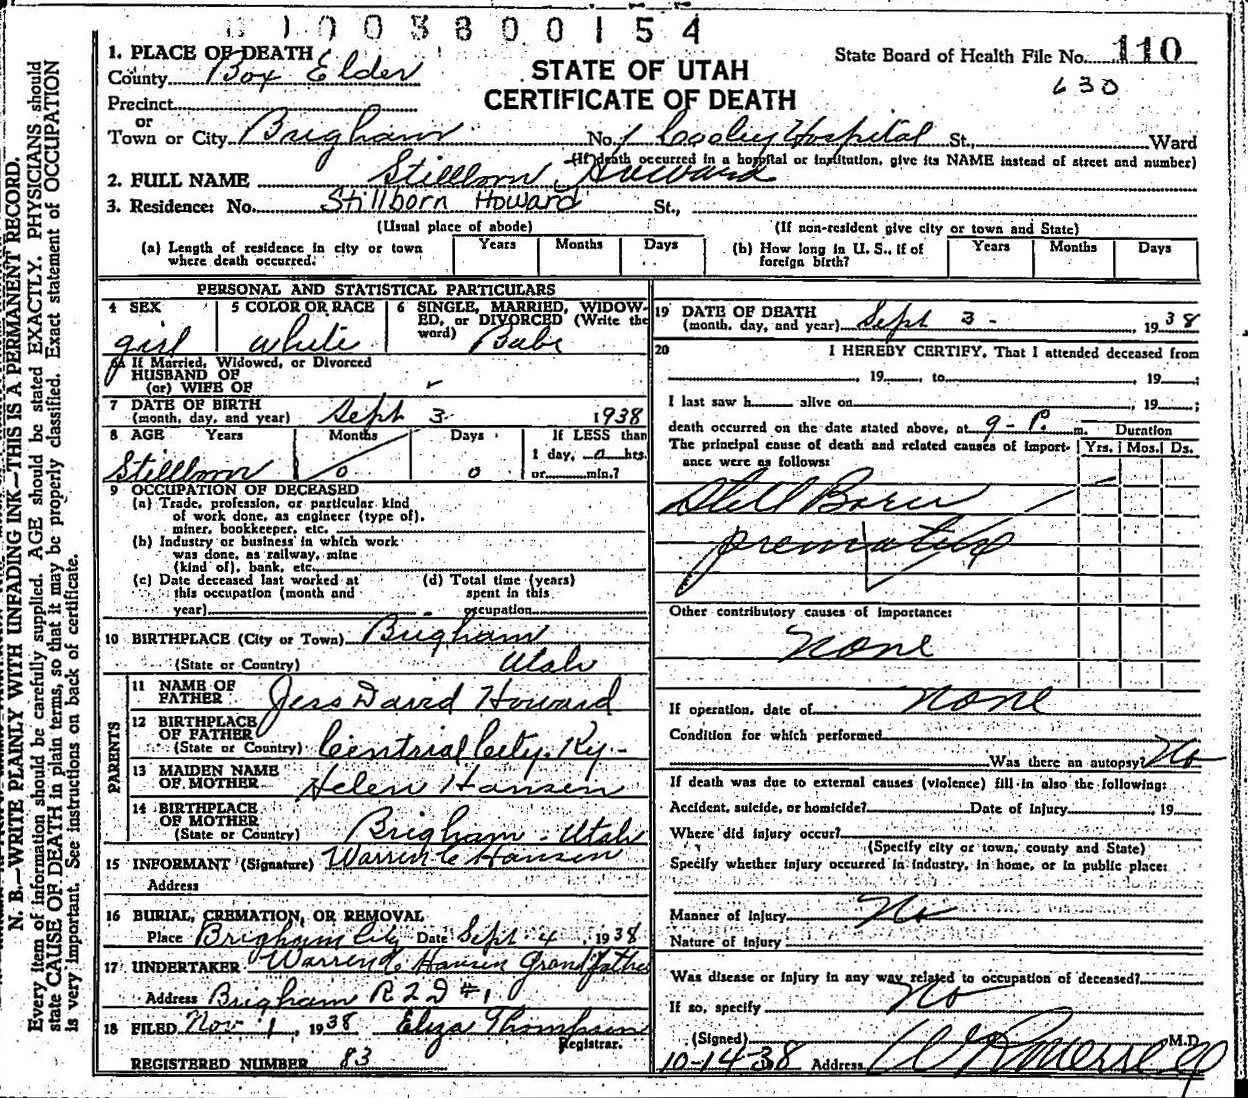 1003800154
1. PLACE OF DEATH
County Box Elder
STATE OF UTAH
CERTIFICATE OF DEATH
State Board of Health File No. 110
630
Precinct
or
Town or City Brigham No. Cooley Hospital St., Ward
(If death occurred in a hospital or institution, give its NAME instead of street and number)
2. FULL NAME Stillborn Howard
3. Residence: No. Stillborn Howard St.,
(Usual place of abode) (If non-resident give city or town and State)
(a) Length of residence in city or town where death occurred. Years Months Days (b) How long in U. S., if of foreign birth? Years Months Days
PERSONAL AND STATISTICAL PARTICULARS
4 SEX 5 COLOR OR RACE 6 SINGLE, MARRIED, WIDOWED, or DIVORCED (Write the word)
girl white Babe
6a If Married, Widowed, or Divorced
HUSBAND OF
(or) WIFE OF
7 DATE OF BIRTH
(month, day, and year) Sept 3 1938
8 AGE Years Months Days If LESS than
1 day, 0 hrs.
Stillborn 0 0 or min.?
9 OCCUPATION OF DECEASED
(a) Trade, profession, or particular kind
of work done, as engineer (type of),
miner, bookkeeper, etc.
(b) Industry or business in which work
was done, as railway, mine
(kind of), bank, etc.
(c) Date deceased last worked at
this occupation (month and
year)
(d) Total time (years)
spent in this
occupation
10 BIRTHPLACE (City or Town) Brigham
(State or Country) Utah
PARENTS
11 NAME OF
FATHER Jess David Howard
12 BIRTHPLACE
OF FATHER
(State or Country) Centrial City. Ky-
13 MAIDEN NAME
OF MOTHER Helen Hansen
14 BIRTHPLACE
OF MOTHER
(State or Country) Brigham - Utah
15 INFORMANT (Signature) Warren C Hansen
Address
16 BURIAL, CREMATION, OR REMOVAL
Place Brigham City Date Sept 4, 1938
17 UNDERTAKER Warren C Hansen Grandfather
Address Brigham R 2 D #1
18 FILED Nov 1, 1938 Eliza Thompson
Registrar.
REGISTERED NUMBER 83
19 DATE OF DEATH
(month, day, and year) Sept 3 - , 1938
20 I HEREBY CERTIFY, That I attended deceased from
, 19 , to , 19 ;
I last saw h alive on , 19 ;
death occurred on the date stated above, at 9- P. m.
Duration
The principal cause of death and related causes of importance were as follows: Yrs. Mos. Ds.
Still Born
premature
Other contributory causes of importance:
none
If operation, date of none
Condition for which performed
Was there an autopsy? No
If death was due to external causes (violence) fill in also the following:
Accident, suicide, or homicide? Date of Injury , 19
Where did injury occur?
(Specify city or town, county and State)
Specify whether injury occurred in industry, in home, or in public place:
Manner of injury No
Nature of injury
Was disease or injury in any way related to occupation of deceased?
If so, specify No
(Signed) M.D.
10-14-38 Address
N. B.—WRITE PLAINLY WITH UNFADING INK—THIS IS A PERMANENT RECORD.
Every item of information should be carefully supplied. AGE should be stated EXACTLY. PHYSICIANS should
state CAUSE OF DEATH in plain terms, so that it may be properly classified. Exact statement of OCCUPATION
is very important. See instructions on back of certificate.